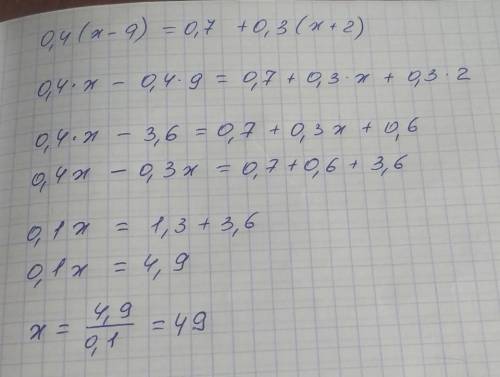 0,4(x-9) = 0,7 + 0,3(x+2)
0,4·x - 0,4·9 = 0,7 + 0,3·x + 0,3·2
0,4·x - 3,6 = 0,7 + 0,3x + 0,6
0,4x - 0,3x = 0,7 + 0,6 + 3,6
0,1x = 1,3 + 3,6
0,1x = 4,9
x = 4,9/0,1 = 49